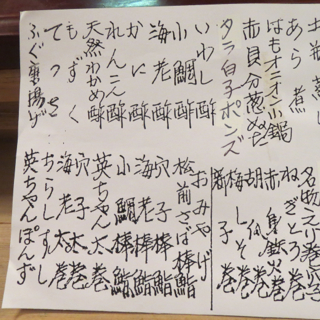 土瓶蒸し
あら煮
はもオニオン小鍋
赤貝分葱ぬた
タラ白子ポンズ
いわし酢
小鯛酢
海老酢
かに酢
れんこん酢
天然わかめ酢
もずく
てっさ
ふぐ唐揚げ
名物
ねぎとろ巻
赤身鉄火巻
胡
梅しそ巻
新子巻
おみやげ
松前さば棒鮨
穴子棒鮨
海老棒鮨
小鯛棒鮨
英ちゃん太巻
穴子太巻
海老太巻
ちらしずし
英ちゃんぽんず